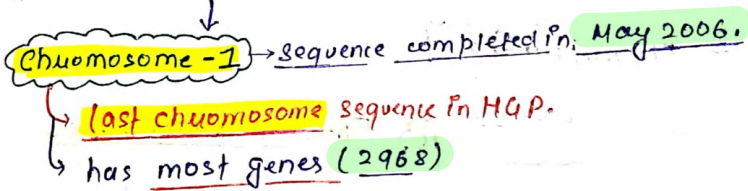 Chromosome-1 → sequence completed in, May 2006.
→ last chromosome sequence in HGP.
→ has most genes (2968)